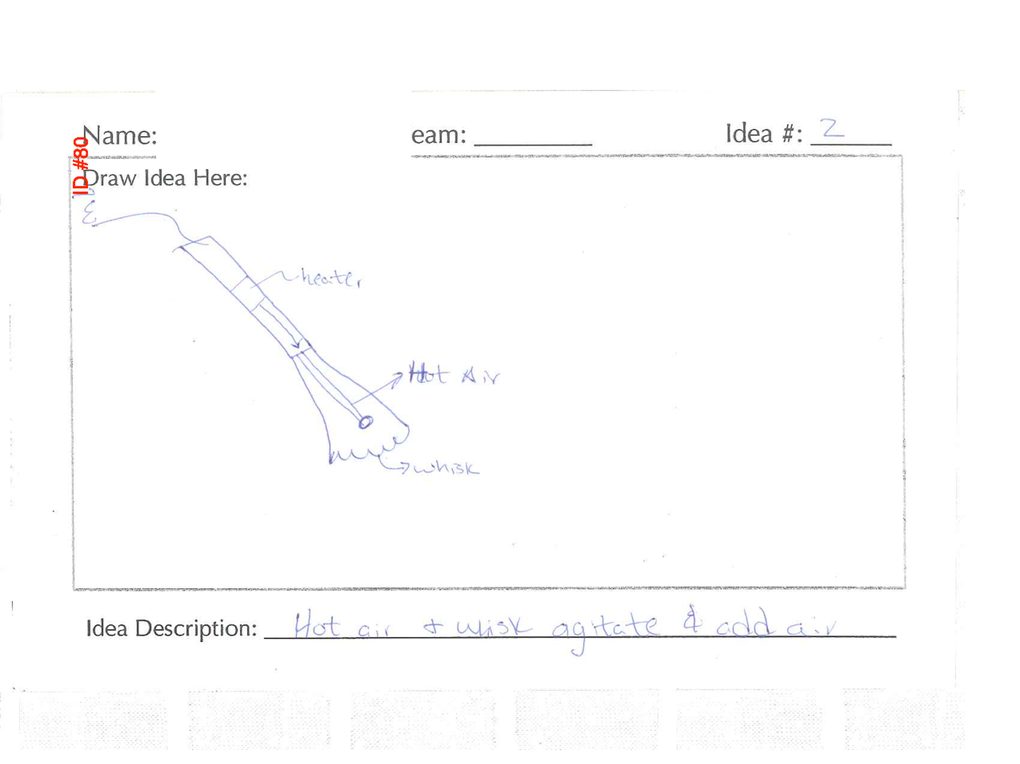 Name:
eam:
Idea #: 2
ID #80
Draw Idea Here:
heater
Hot Air
whisk
Idea Description: Hot air & whisk agitate & add air